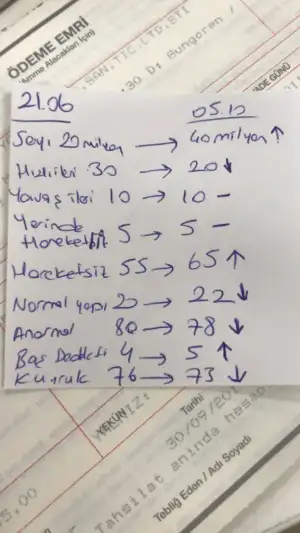 ÖDEME EMRİ
SAN.TİC.LTD.ŞTİ
30 D: Bungoren /
ADE GÜNÜ
21.06 05.10
Sayı 20 milyon → 40 milyon ↑
Hızlı ileri 30 → 20 ↓
Yavaş ileri 10 → 10 -
Yerinde Hareketli 5 → 5 -
Hareketsiz 55 → 65 ↑
Normal yapı 20 → 22 ↓
Anormal 80 → 78 ↓
Baş 4 → 5 ↑
Kuyruk 76 → 73 ↓
YEKÜN
Tarihi
30/09/20
5,00
Tahsilat anında hesap
Tebliğ Eden / Adı Soyadı